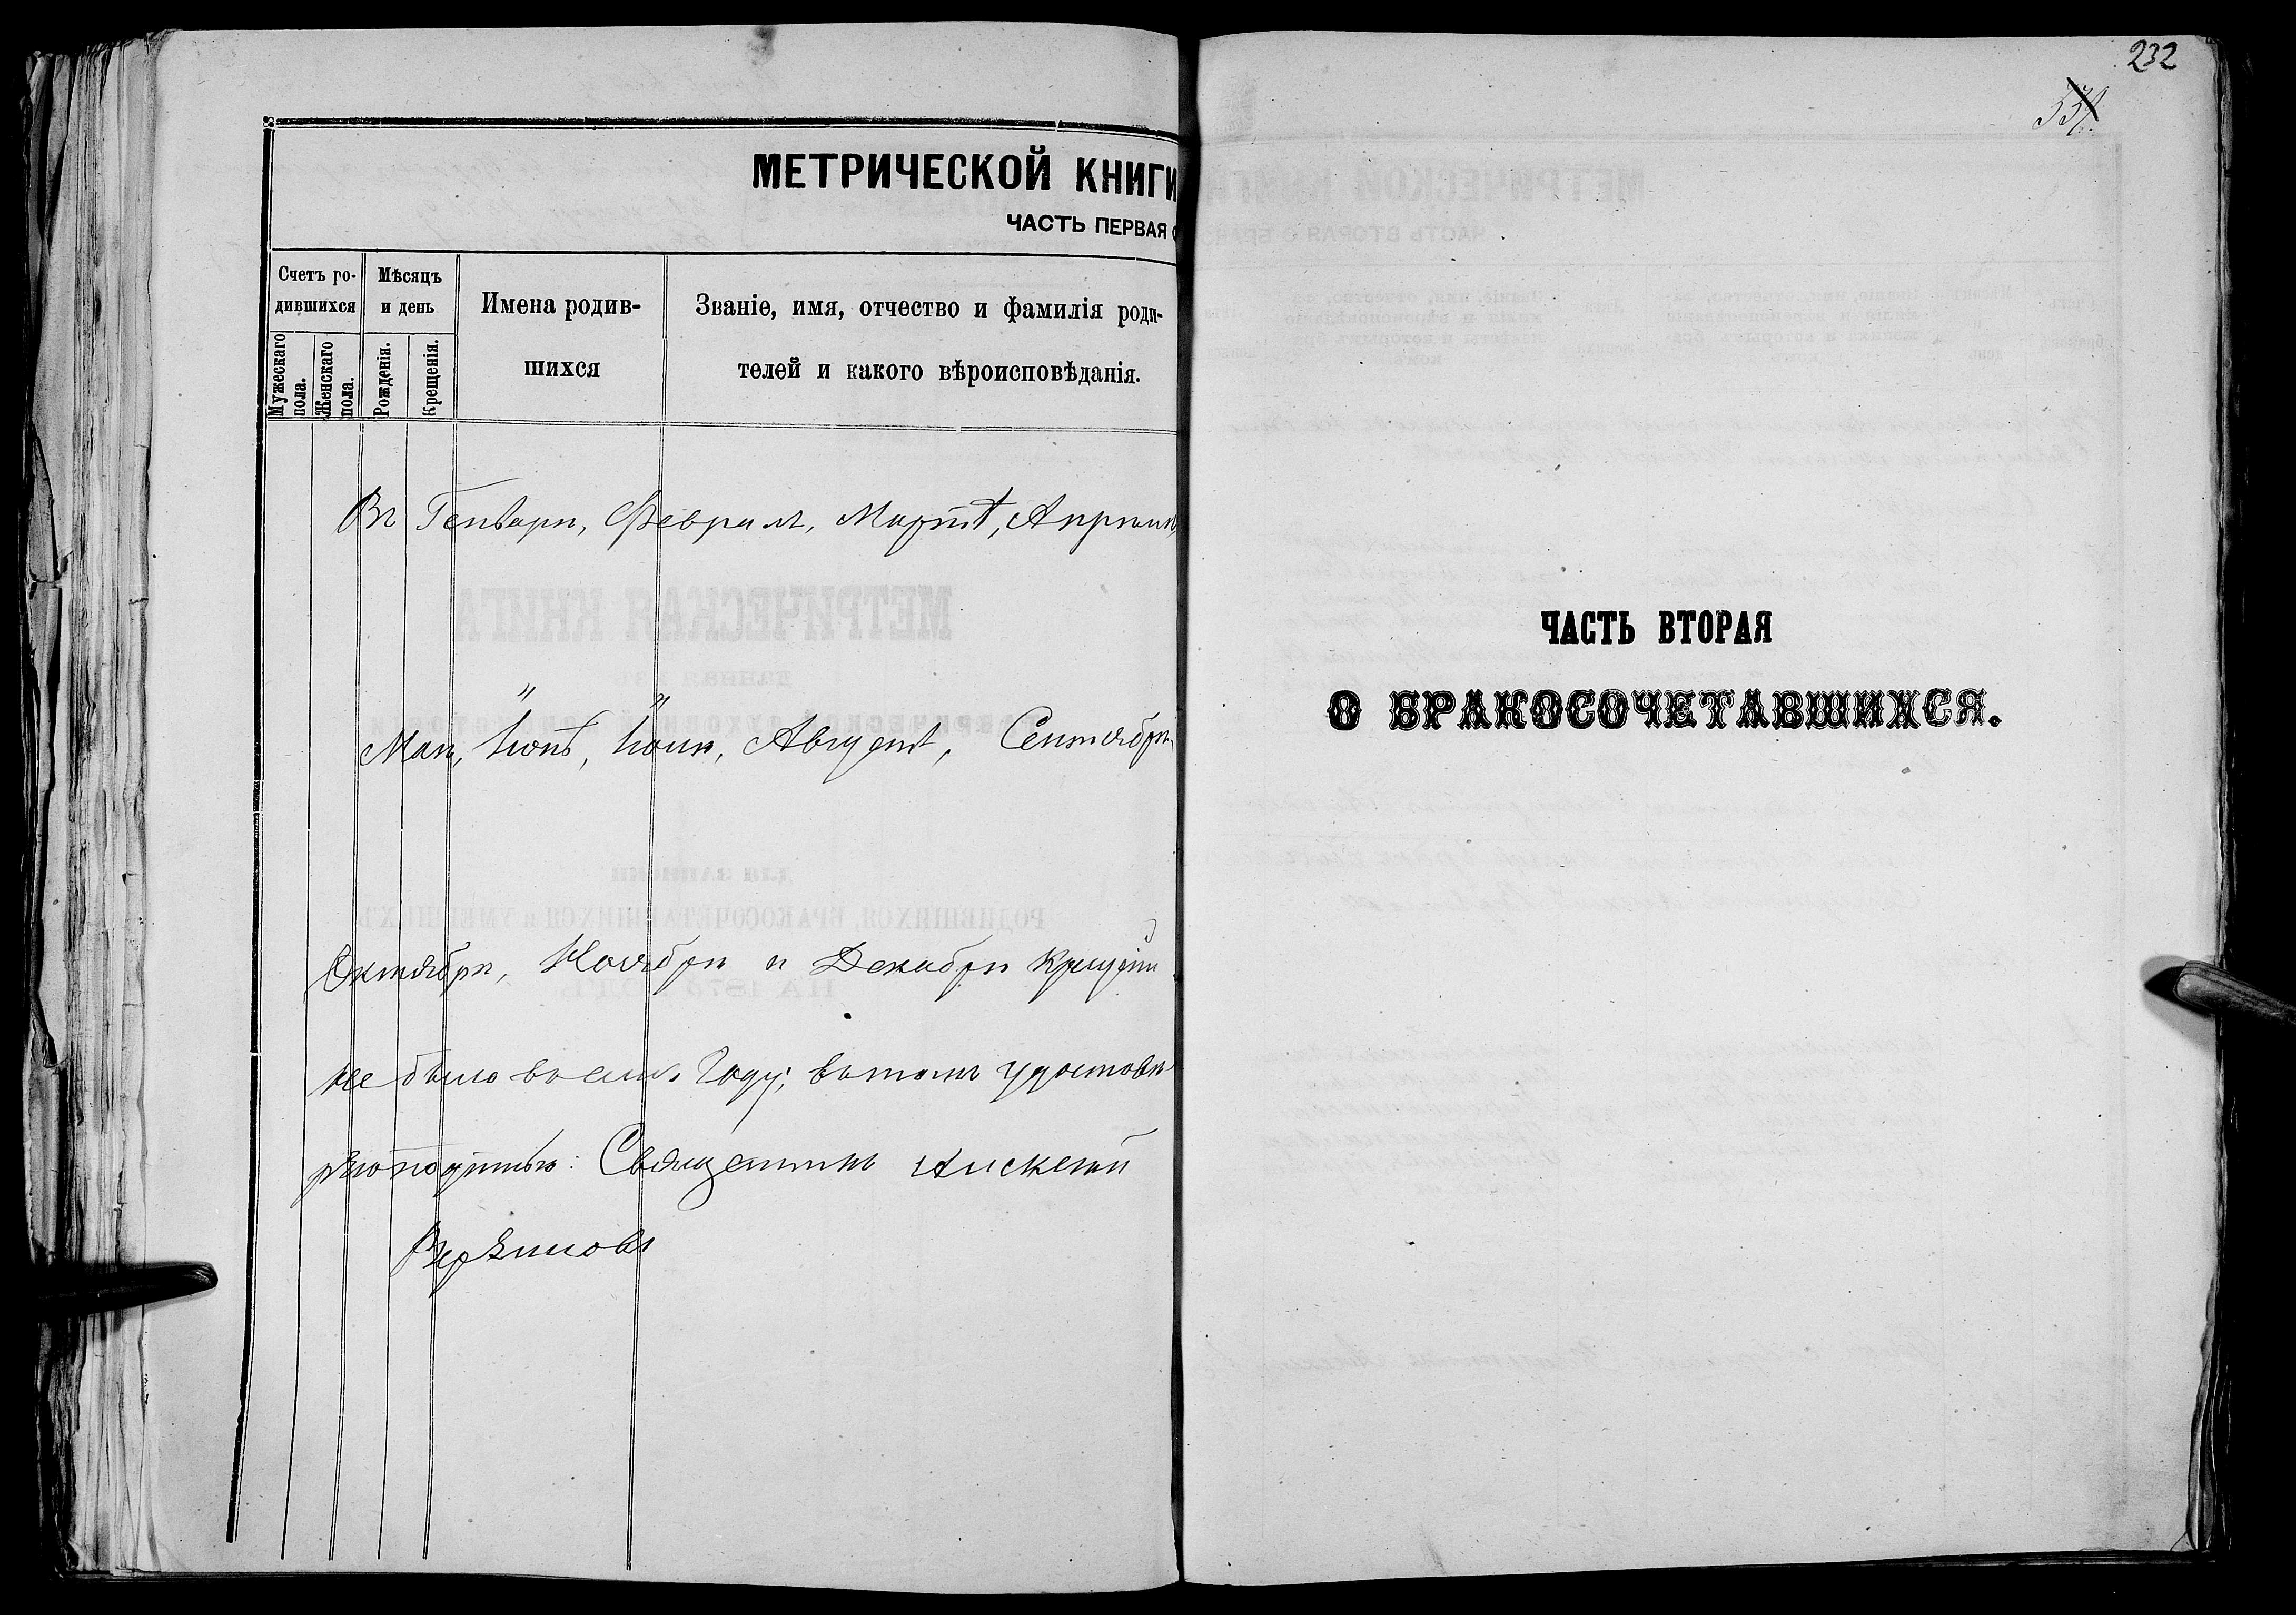 232
МЕТРИЧЕСКОЙ КНИГИ
ЧАСТЬ ПЕРВАЯ
Счетъ ро-
дившихся
Мужескаго
пола.
Женскаго
пола.
Мѣсяцъ
и день
Рожденія.
Крещенія.
Имена родив-
шихся
Званіе, имя, отчество и фамилія роди-
телей и какого вѣроисповѣданія.
Въ Генварѣ, Февралѣ, Мартѣ, Апрѣлѣ,
Маѣ, Іюнѣ, Іюлѣ, Августѣ, Сентябрѣ,
Октябрѣ, Ноябрѣ и Декабрѣ
не было въ семъ Году; въ томъ удостовѣ
Священникъ Алексѣй
ЧАСТЬ ВТОРАЯ
О БРАКОСОЧЕТАВШИХСЯ.